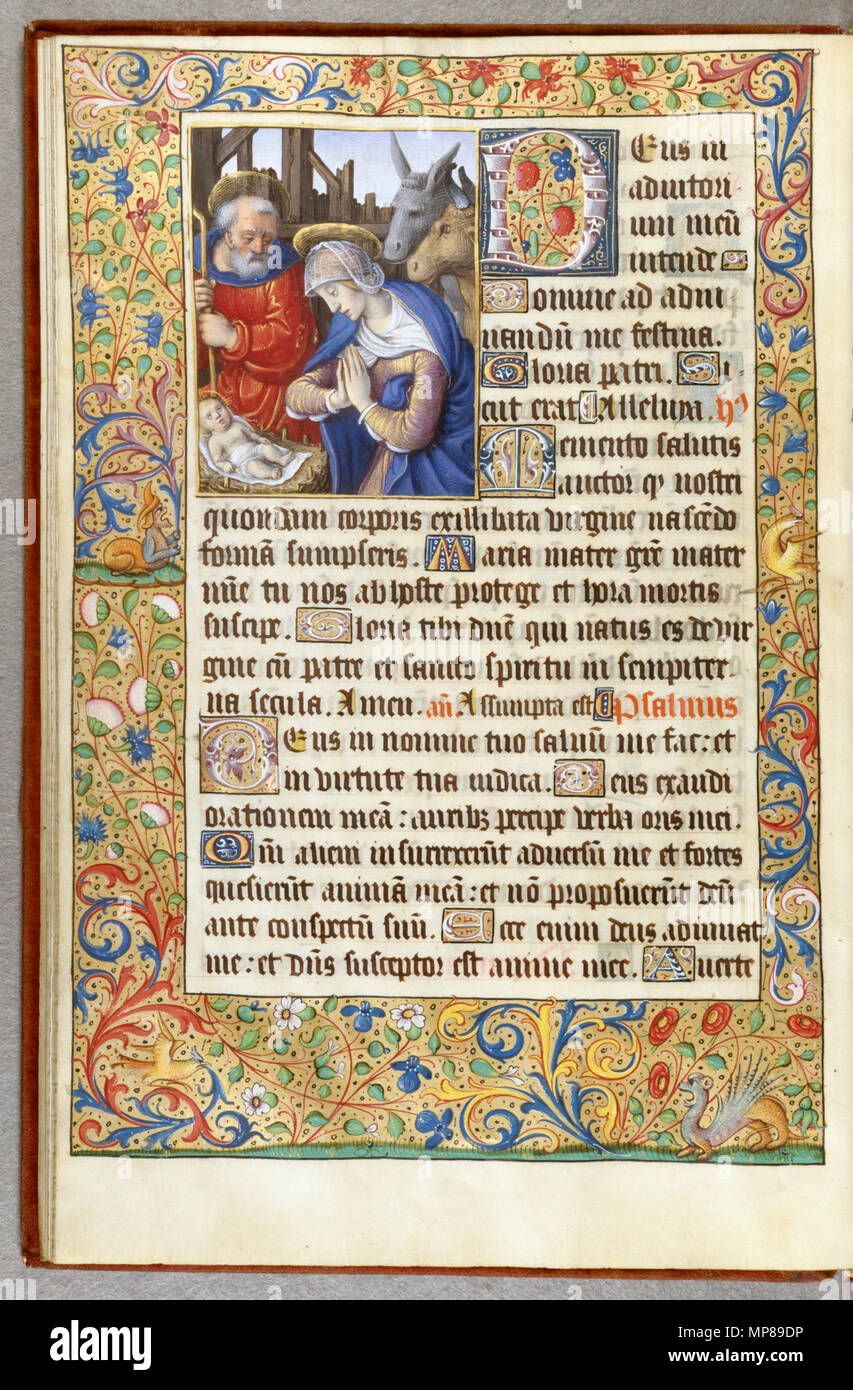 Deus in
adiutori
um meū
intende
Domine ad adiu
uandū me festina.
Gloria patri. Si
cut erat Alleluya. hꝰ
Memento salutis
auctor qꝫ nostri
quondam corporis exillibata virgine nascēdo
formā sumpseris. Maria mater grē mater
mīe tu nos ab hoste protege et hora mortis
suscipe. Gloria tibi dnē qui natus es de vir
gine cū patre et sancto spiritu in sempiter
na secula. Amen. an̄. Assumpta est Psalmus
Deus in nomine tuo saluū me fac: et
in virtute tua iudica. Deus exaudi
orationem meā: auribꝫ percipe verba oris mei.
Qm̄ alieni insurrexerūt aduersū me et fortes
quesierūt animā meā: et nō proposuerūt deū
ante conspectū suū. Ecce enim deus adiuuat
me: et dn̄s susceptor est anime mee. Auerte
alamy
alamy
Image ID: MP89DP
www.alamy.com